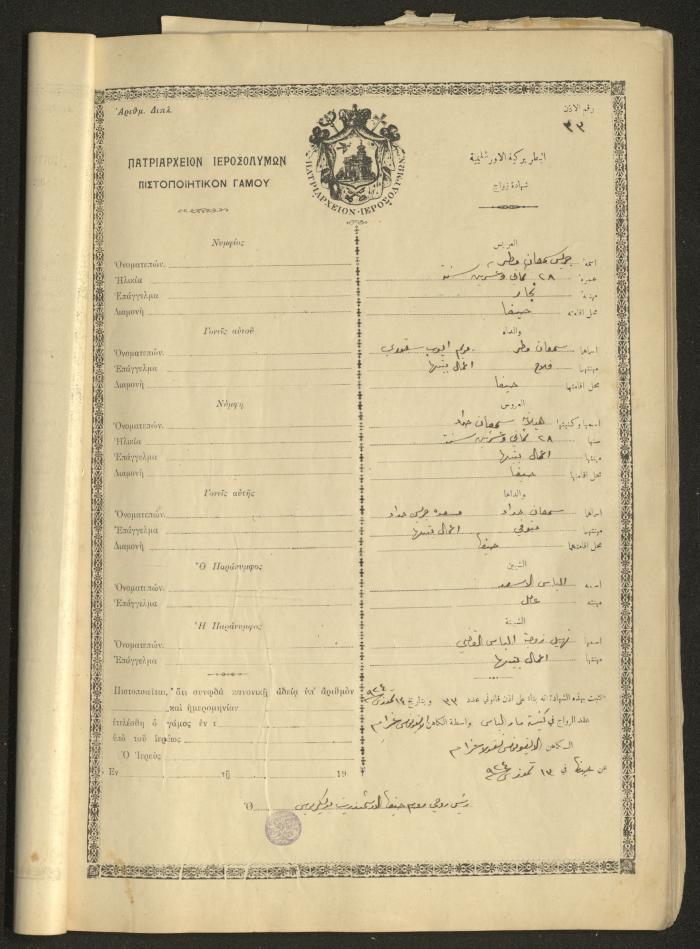 Ἀριθμ. Διπλ.
رقم الاذن
٣٣
ΠΑΤΡΙΑΡΧΕΙΟΝ ΙΕΡΟΣΟΛΥΜΩΝ
ΠΙΣΤΟΠΟΙΗΤΙΚΟΝ ΓΑΜΟΥ
ΠΑΤΡΙΑΡΧΕΙΟΝ·ΙΕΡΟΣΟΛΥΜΩΝ
البطريركية الاورشليمية
شهادة زواج
Νυμφίος
Ὀνοματεπών.
Ἡλικία
Ἐπάγγελμα
Διαμονὴ
Γονεῖς αὐτοῦ
Ὀνοματεπών.
Ἐπάγγελμα
Διαμονὴ
Νύμφη
Ὀνοματεπών.
Ἡλικία
Ἐπάγγελμα
Διαμονὴ
Γονεῖς αὐτῆς
Ὀνοματεπών.
Ἐπάγγελμα
Διαμονὴ
Ὁ Παράνυμφος
Ὀνοματεπών.
Ἐπάγγελμα
Ἡ Παράνυμφος
Ὀνοματεπών.
Ἐπάγγελμα
Πιστοποιεῖται, ὅτι συνῳδὰ κανονικῇ ἀδείᾳ ὑπ' ἀριθμὸν
καὶ ἡμερομηνίαν
ἐτελέσθη ὁ γάμος ἐν τ
ὑπὸ τοῦ ἱερέως
Ὁ Ἱερεὺς
Ἐν τῇ 19
العريس
اسمه جريس سمعان مطر
عمره ٢٨ ثماني وعشرين سنة
مهنته نجار
محل اقامته حيفا
والداه
اسماهما سمعان مطر مريم ايوب
مهنتهما فلاح اعمال بيتها
محل اقامتهما حيفا
العروس
اسمها وكنيتها هيلانة سمعان حداد
سنها ٢٨ ثماني وعشرين سنة
مهنتها اعمال بيتها
محل اقامتها حيفا
والداها
اسماهما سمعان حداد مسعده جريس حداد
مهنتهما متوفي اعمال بيتها
محل اقامتهما حيفا
الشبين
اسمه الياس الاسعد
مهنته
الشبينة
اسمها زوجة الياس
مهنتها اعمال بيتها
تثبت بهذه الشهادة انه بناء على اذن قانوني عدد ٣٣ وبتاريخ ١٢ تموز
عقد الزواج في كنيسة مار الياس بواسطة الكاهن
الكاهن
عن حيفا في ١٣ تموز
Ὁ رئيس روحي روم حيفا